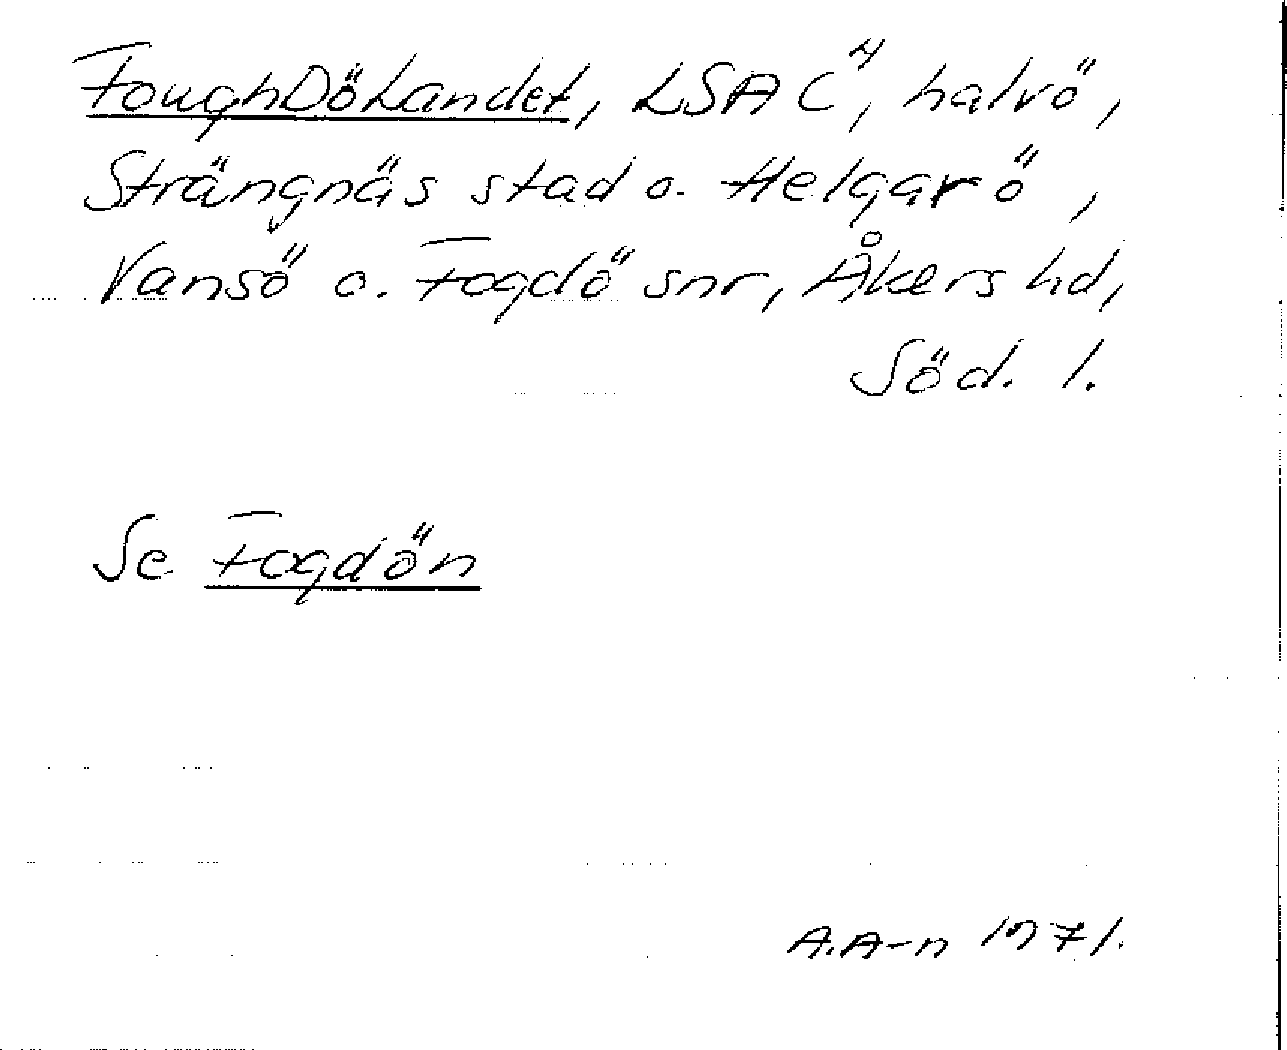 FoughDöLandet, LSA C⁴, halvö,
Strängnäs stad o. Helgarö,
Vansö o. Fogdö snr, Åkers hd,
Söd. l.
Se Fogdön
A.A-n 1971.